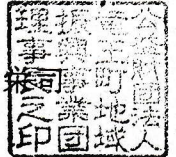 公益財団法人
竜王町地域
振興事業団
理事長之印
兼司